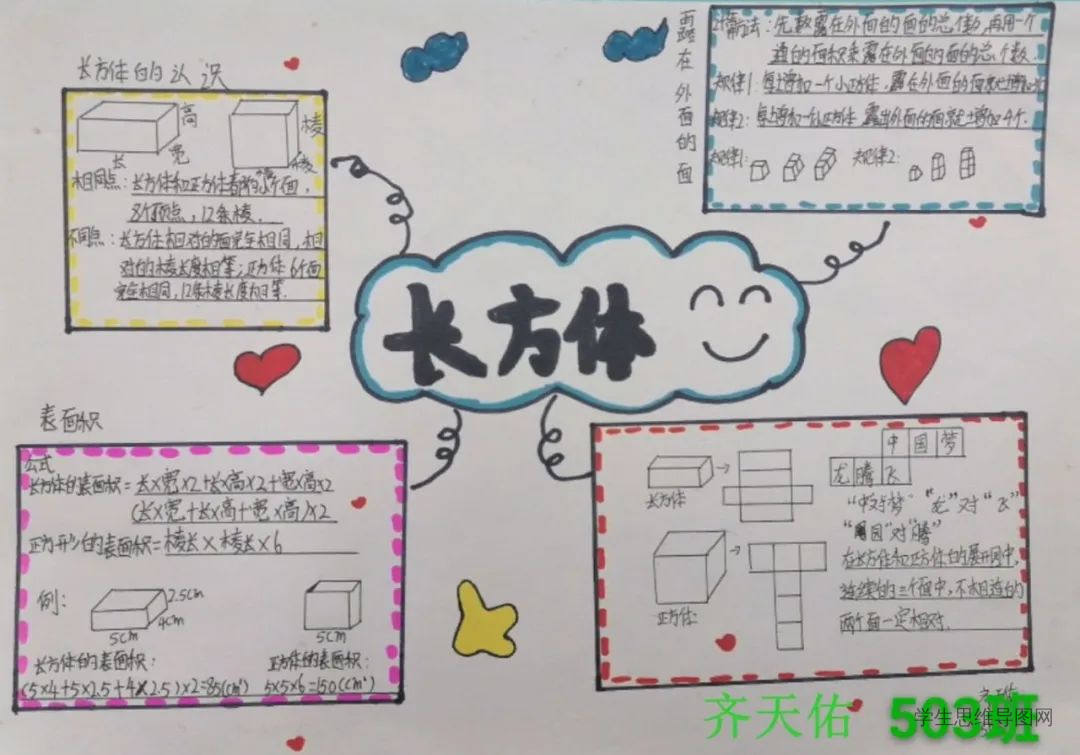 长方体的认识
高
宽
长
棱
棱
相同点：长方体和正方体都有6个面，
8个顶点，12条棱．
不同点：长方体相对的面完全相同，相
对的棱长度相等；正方体6个面
完全相同，12条棱长度相等．
露在外面的面
计算方法：先数露在外面的面的总个数，再用一个
面的面积乘露在外面的面的总个数．
规律1：每增加一个小正方体，露在外面的面就增加
规律2：每增加一个小正方体，露出外面的面就增加4个．
规律1：
规律2：
长方体
表面积
公式
长方体的表面积=长×宽×2+长×高×2+宽×高×2
(长×宽+长×高+宽×高)×2
正方形的表面积=棱长×棱长×6
例：
2.5cm
4cm
5cm
5cm
长方体的表面积：
(5×4+5×2.5+4×2.5)×2=85(cm²)
正方体的表面积：
5×5×6=150(cm²)
中国梦
龙腾飞
长方体
正方体
"中"对"梦" "龙"对"飞"
"国"对"腾"
在长方体和正方体的展开图中，
连续的三个面中，不相连的
两个面一定相对．
齐天佑 503班
学生思维导图网